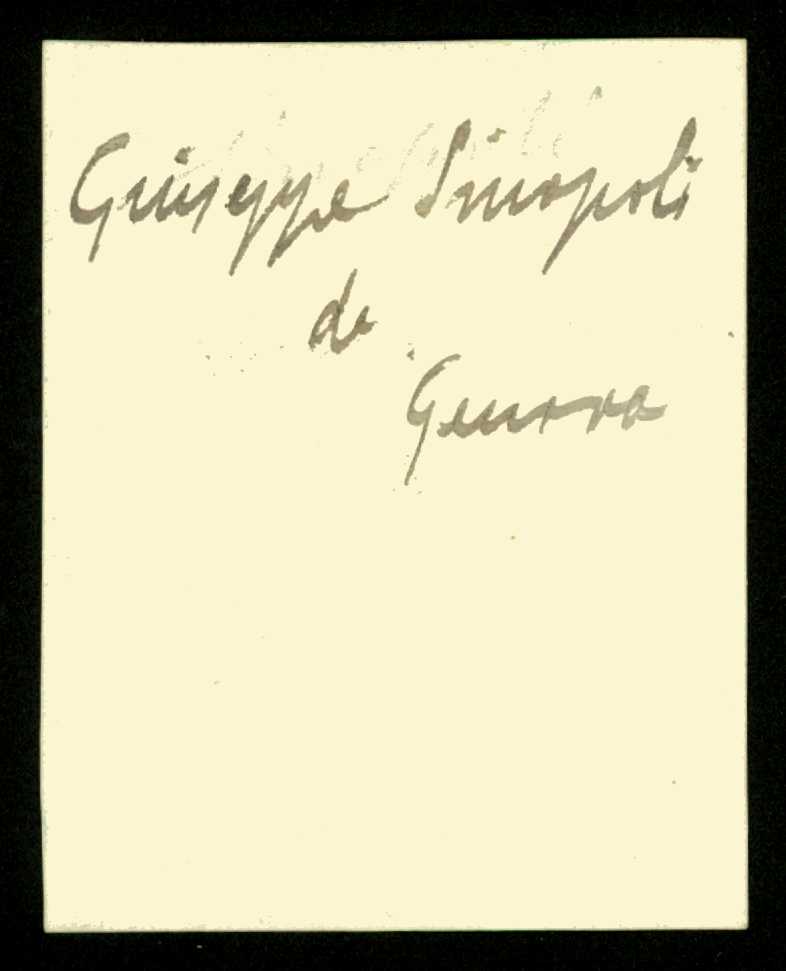 Giuseppe Sinopoli
de
Genova